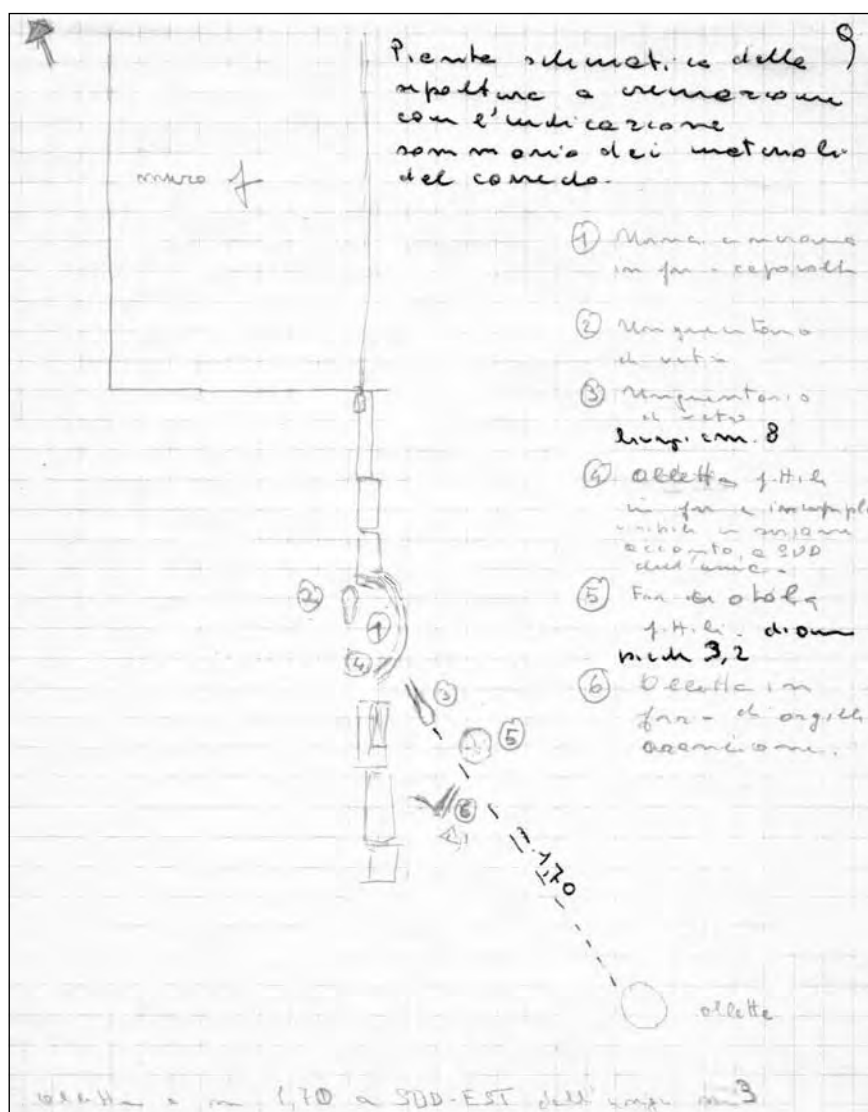 9
Pianta schematica della
sepoltura a cremazione
con l'indicazione
sommaria dei materiali
del corredo.
muro f
① Urna cineraria
in fr. e capovolta
② Unguentario
di vetro
③ Unguentario
di vetro
lungh. cm. 8
④ Olletta fittile
in fr. e incompleta
visibile in sezione
accanto, a SUD
dell'urna.
⑤ Fr. di ciotola
fittile. diam
piede 3,2
⑥ Olletta in
frr. di argilla
arancione.
②
①
④
③
⑤
⑥
m. 1,70
olletta
olletta a m. 1,70 a SUD-EST dell'ungu. n. 3